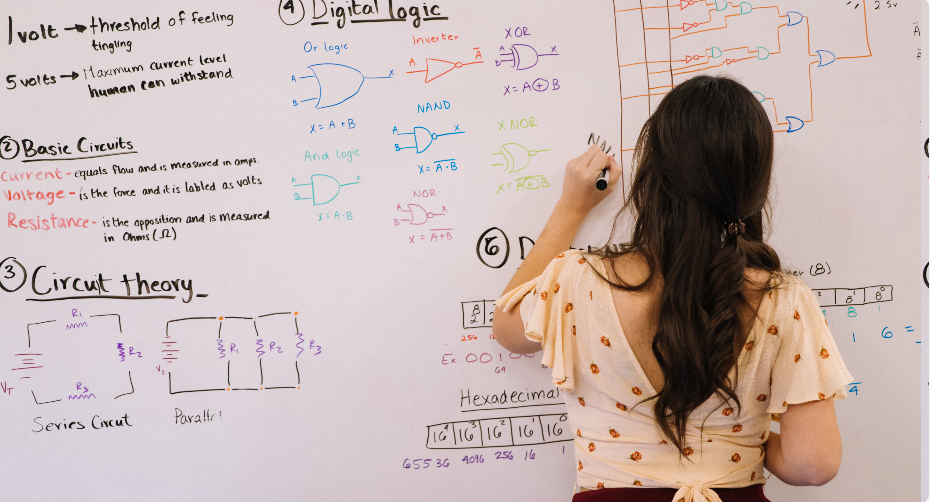 1 volt → threshold of feeling
tingling
5 volts → Maximum current level
human can withstand
② Basic Circuits
Current - equals flow and is measured in amps.
Voltage - is the force and it is labled as volts
Resistance - is the opposition and is measured
in Ohms (Ω)
③ Circuit theory
R1
R2
R3
VT
Series Circut
R1
R2
R3
Parallel
④ Digital logic
Or logic
A
B
X
X = A + B
Inverter
A
A̅
XOR
A
B
X
X = A ⊕ B
NAND
A
B
X
X = \overline{A · B}
X NOR
X = \overline{A ⊕ B}
And logic
A
B
X
X = A · B
NOR
A
B
X
X = \overline{A + B}
2.5v
⑤ D
(8)
8¹ 8⁰
256
8 1
Ex. 0010
64
1 6 =
4
Hexadecimal
16⁴ 16³ 16² 16¹ 16⁰
65536 4096 256 16 1